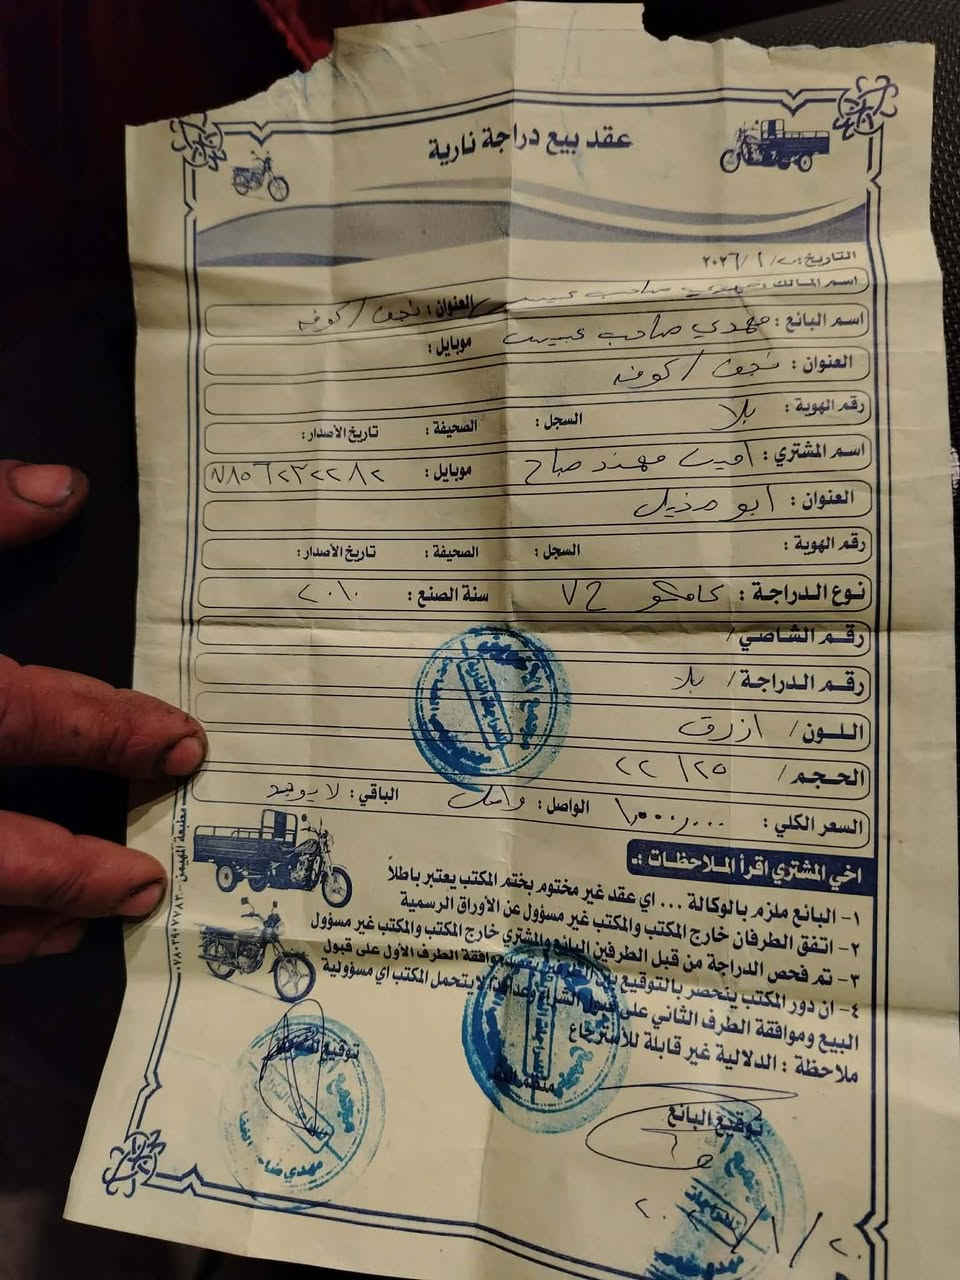 عقد بيع دراجة نارية
التاريخ: ٢٠٢٦/١/٢٠
اسم المالك مهدي صاحب عبيس العنوان: نجف/كوفه
اسم البائع: مهدي صاحب عبيس موبايل:
العنوان: نجف/كوفه
رقم الهوية: بلا السجل: الصحيفة: تاريخ الأصدار:
اسم المشتري: امير مهند صباح موبايل:
العنوان: ابو
رقم الهوية: السجل: الصحيفة: تاريخ الأصدار:
نوع الدراجة: سنة الصنع: ٢٠١٠
رقم الشاصي/
رقم الدراجة/ بلا
اللون/ ازرق
الحجم/
السعر الكلي: ١,٠٠٠,٠٠٠ الواصل: واصل الباقي: لا يوجد
اخي المشتري اقرأ الملاحظات:ـ
١- البائع ملزم بالوكالة ... اي عقد غير مختوم بختم المكتب يعتبر باطلاً
٢- اتفق الطرفان خارج المكتب والمكتب غير مسؤول عن الأوراق الرسمية
٣- تم فحص الدراجة من قبل الطرفين البائع والمشتري خارج المكتب والمكتب غير مسؤول
٤- ان دور المكتب ينحصر بالتوقيع بين الطرفين موافقة الطرف الأول على قبول
البيع وموافقة الطرف الثاني على قبول الشراء وعدا هذا لا يتحمل المكتب اي مسؤولية
ملاحظة: الدلالية غير قابلة للأسترجاع
توقيع
توقيع البائع
مطبعة المهيمن